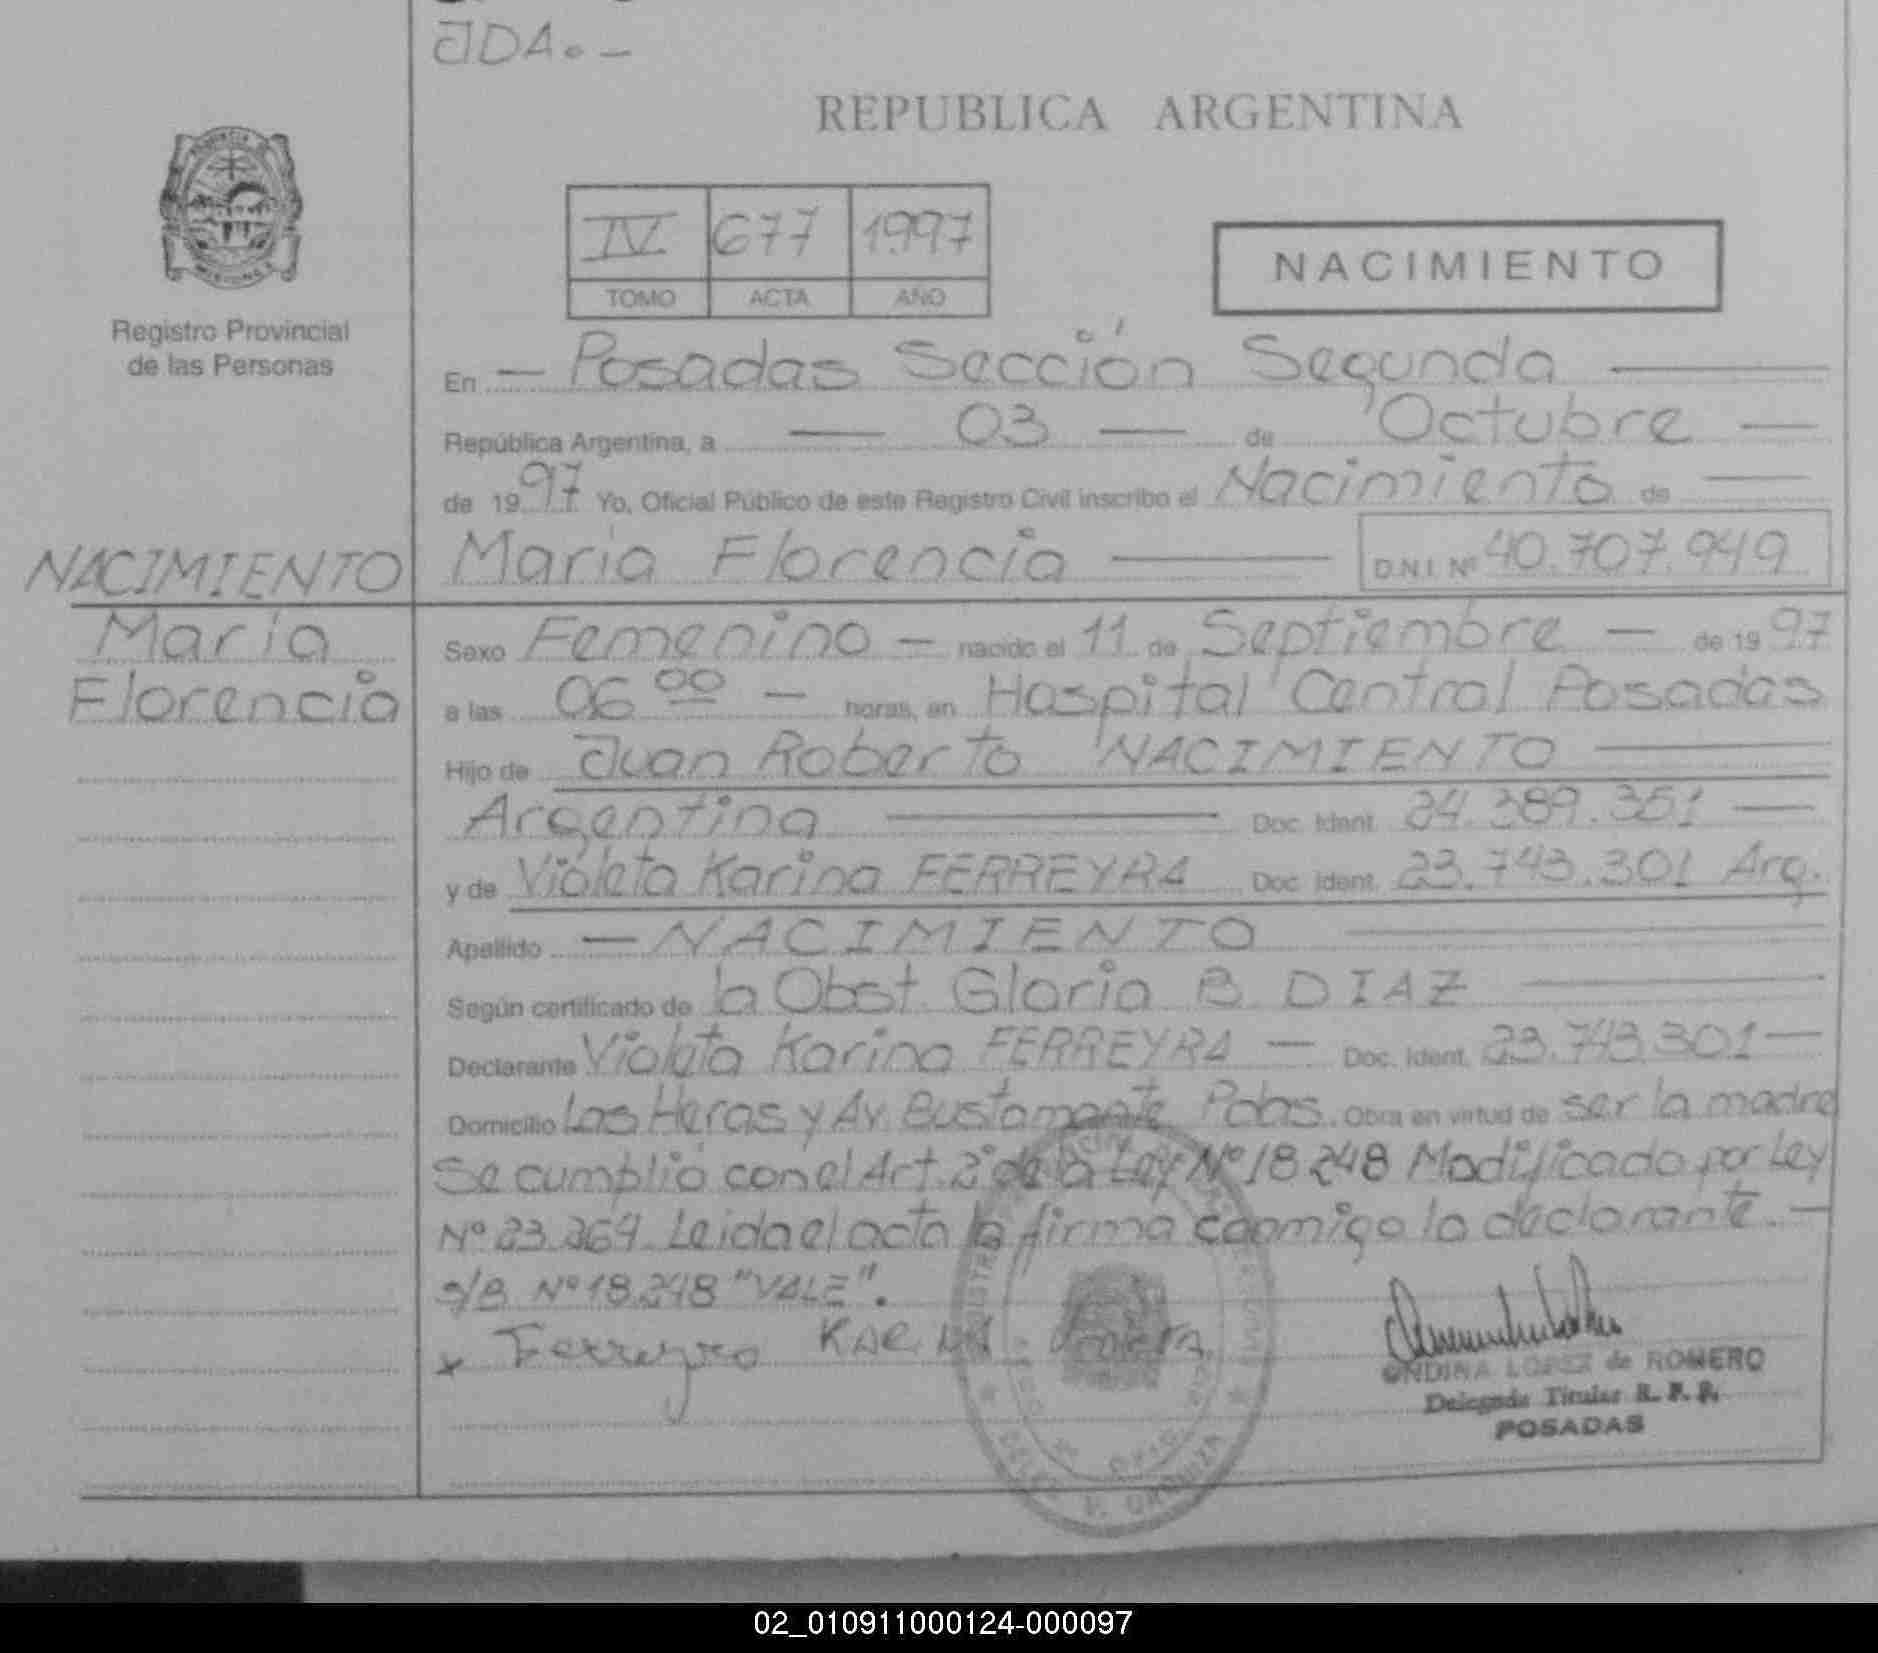 JDA. -
REPUBLICA ARGENTINA
IV 677 1997
TOMO ACTA AÑO
NACIMIENTO
Registro Provincial
de las Personas
En - Posadas Sección Segunda
República Argentina, a 03 de Octubre
de 1997 Yo, Oficial Público de este Registro Civil inscribo el Nacimiento de
Maria Florencia D.N.I. Nº 40.707.949
NACIMIENTO
Maria
Florencia
Sexo Femenino - nacido el 11 de Septiembre - de 1997
a las 06 00 - horas, en Hospital Central Posadas
Hijo de Juan Roberto NACIMIENTO
Argentina Doc. Ident. 24.389.351
y de Violeta Karina FERREYRA Doc. Ident. 23.743.301 Arg.
Apellido - NACIMIENTO
Según certificado de la Obst. Gloria B. DIAZ
Declarante Violeta Karina FERREYRA - Doc. Ident. 23.743.301 -
Domicilio Las Heras y Av. Bustamante Pdas. Obra en virtud de ser la madre
Se cumplió con el Art. 2º de la Ley Nº 18.248 Modificado por Ley
Nº 23.264. Leida el acta la firma conmigo la declarante. -
s/B Nº 18.248 "VALE".
x Ferreyra Karina Violeta
ONDINA LOPEZ de ROMERO
Delegada Titular R. P. P.
POSADAS
02_010911000124-000097